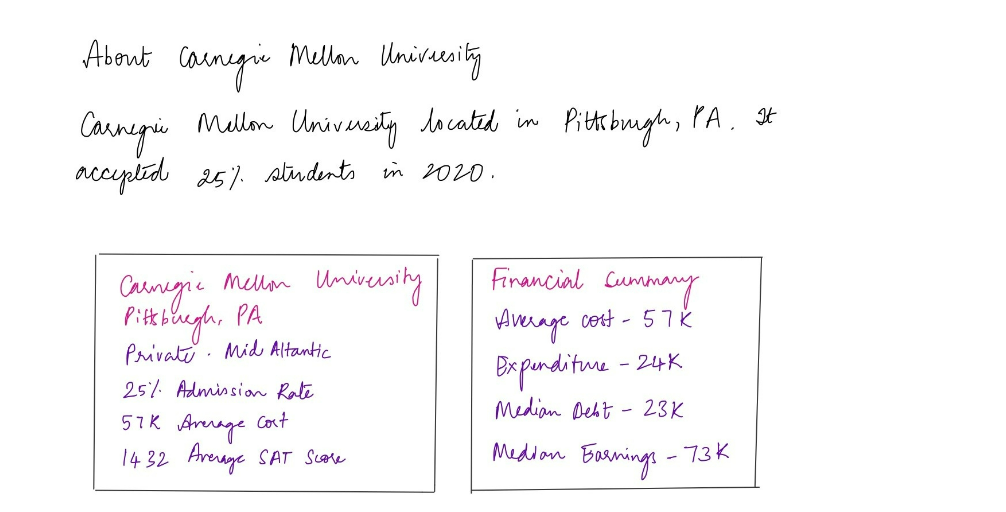 About Carnegie Mellon University
Carnegie Mellon University located in Pittsburgh, PA. It
accepted 25% students in 2020.
Carnegie Mellon University
Pittsburgh, PA
Private. Mid Altantic
25% Admission Rate
57K Average Cost
1432 Average SAT Score
Financial Summary
Average cost - 57K
Expenditure - 24K
Median Debt - 23K
Median Earnings - 73K